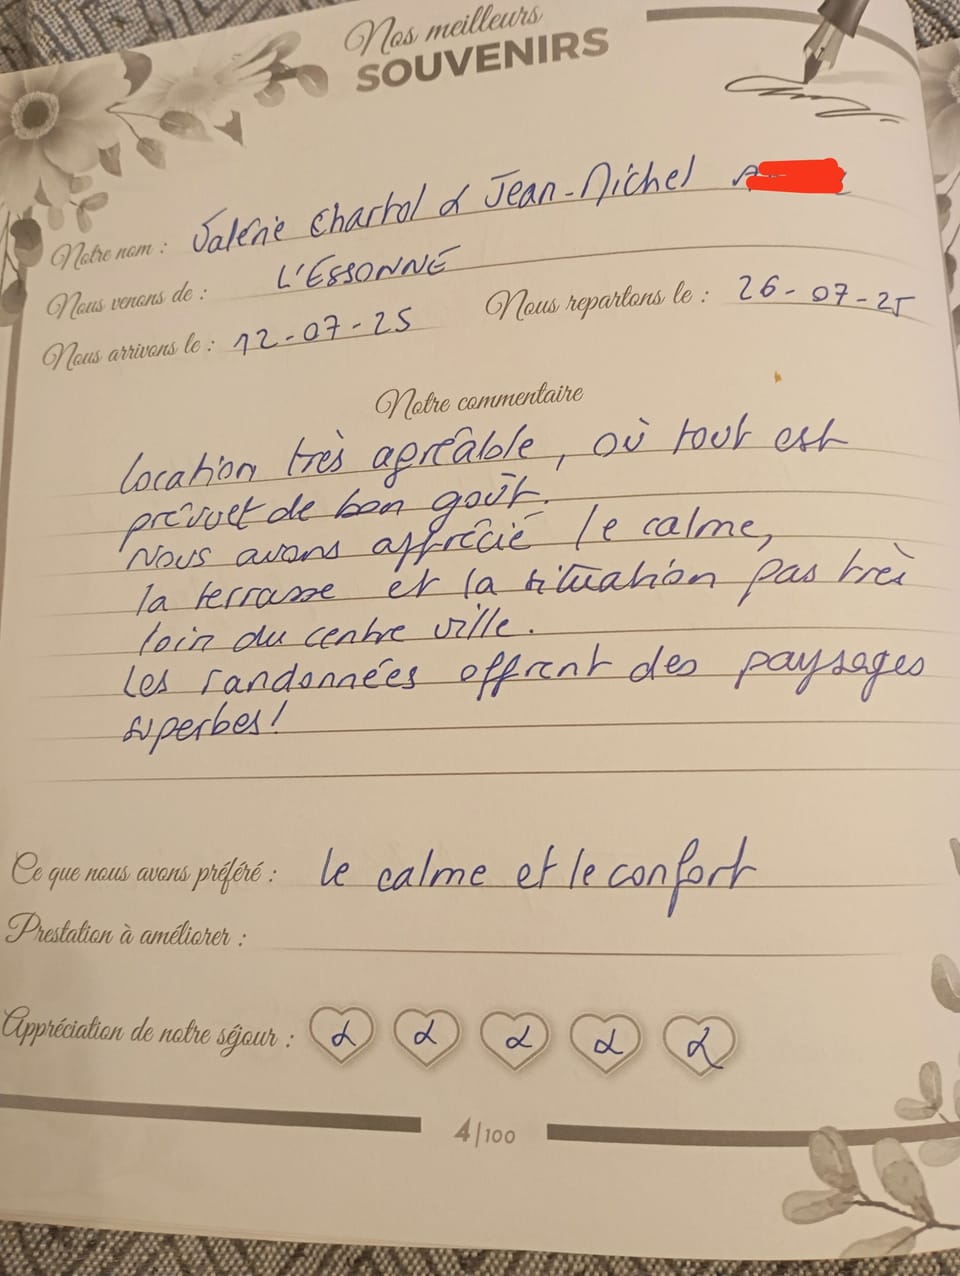 Nos meilleurs
SOUVENIRS
Notre nom : Valérie Chartol & Jean-Michel
Nous venons de : L'ESSONNE
Nous arrivons le : 12-07-25 Nous repartons le : 26-07-25
Notre commentaire
Location très agréable, où tout est
prévu et de bon goût.
Nous avons apprécié le calme,
la terrasse et la situation pas très
loin du centre ville.
Les randonnées offrent des paysages
superbes!
Ce que nous avons préféré : le calme et le confort
Prestation à améliorer :
Appréciation de notre séjour :
4/100